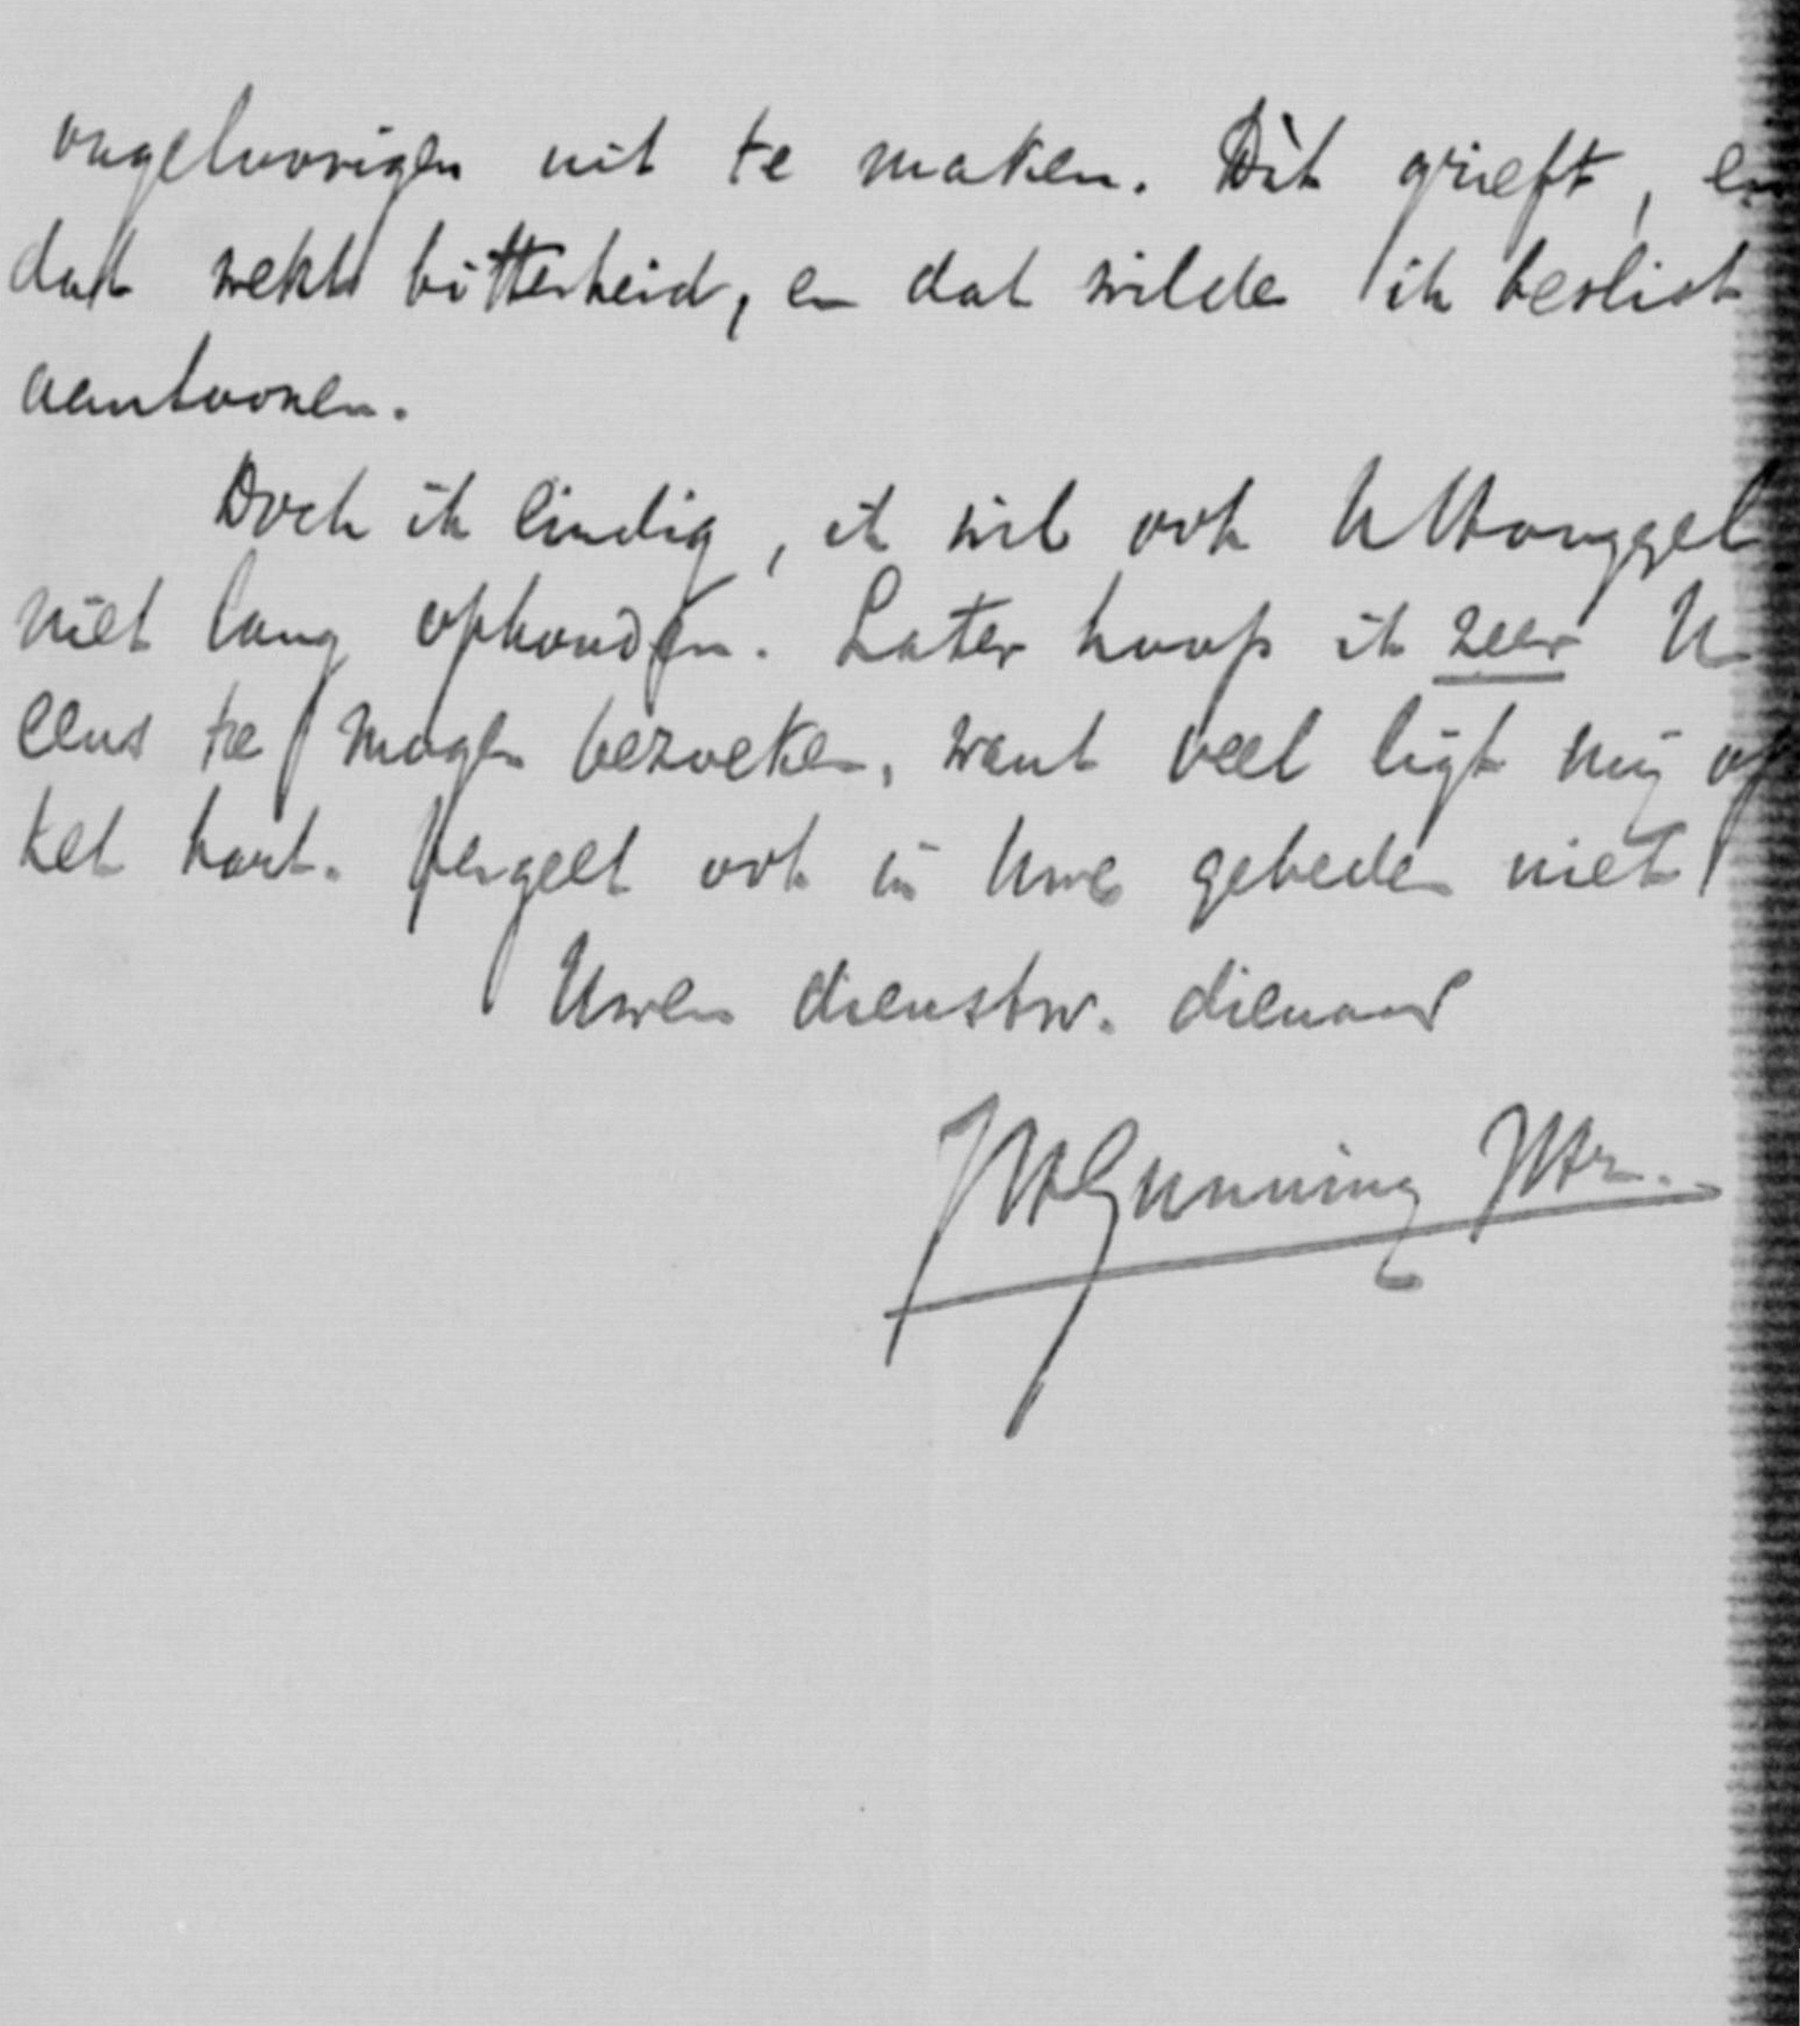 ongeloovigen uit te maken. Dit grieft, en
dat wekt bitterheid, en dat wilde ik beslist
aantoonen.
Doch ik eindig, ik wil ook UHooggel
niet lang ophouden. Later hoop ik zeer U
eens te mogen bezoeken, want veel ligt mij op
het hart. Vergeet ook in Uwe gebeden niet
Uwen dienstw. dienaar
JHGunning JHz.